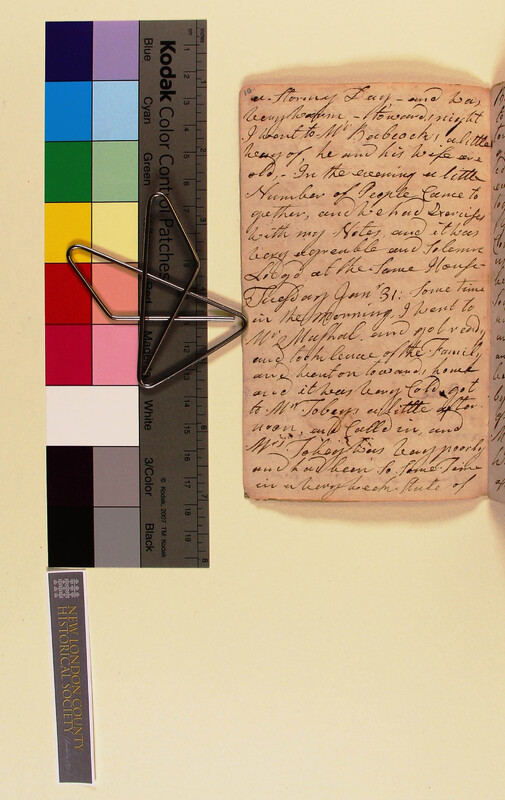 a Stormy Day - and was
very warm, - towards night
I went to Mr Babcocks a little
way of, he and his Wife are
old, - In the evening a little
Number of People Came to
gether, and we had Exercises
with my Notes, and it was
very agreeable and Solemn
Lodgd at the Same House
Tuesday Jan: 31: Some time
in the Morning, I went to
Mr and got ready
and took leave of the Family
and went on towards home
and it was very Cold, got
to Mr Tobeys a little after
noon, and Calld in, and
Mrs Tobey was very poorly
and had been so Some time
in a very weak State of
Kodak Color Control Patches
Blue
Cyan
Green
Red
White
3/Color
Black
© Kodak, 2007 TM: Kodak
1
2
3
4
5
6
7
8
9
10
11
12
13
14
15
16
17
18
19
NEW LONDON COUNTY
HISTORICAL SOCIETY